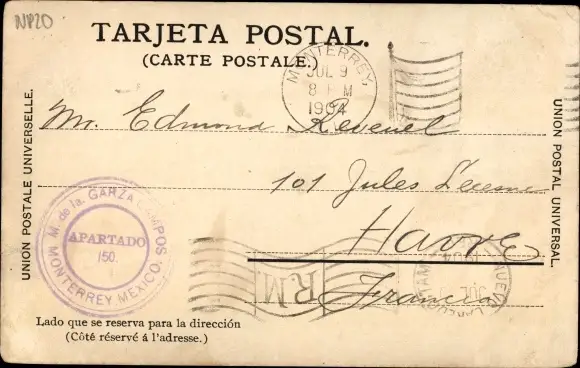 NP20
TARJETA POSTAL.
(CARTE POSTALE.)
MONTERREY,
JUL 9
8 PM
1904
UNION POSTALE UNIVERSELLE.
UNION POSTAL UNIVERSAL.
Mr. Edmond Revenel
101 Jules Lecesne
Havre
Francia
M. de la. GARZA CAMPOS
APARTADO
150.
MONTERREY MEXICO.
R.M
NUEVO LAREDO
JUL
1904
Lado que se reserva para la dirección
(Côté réservé á l'adresse.)